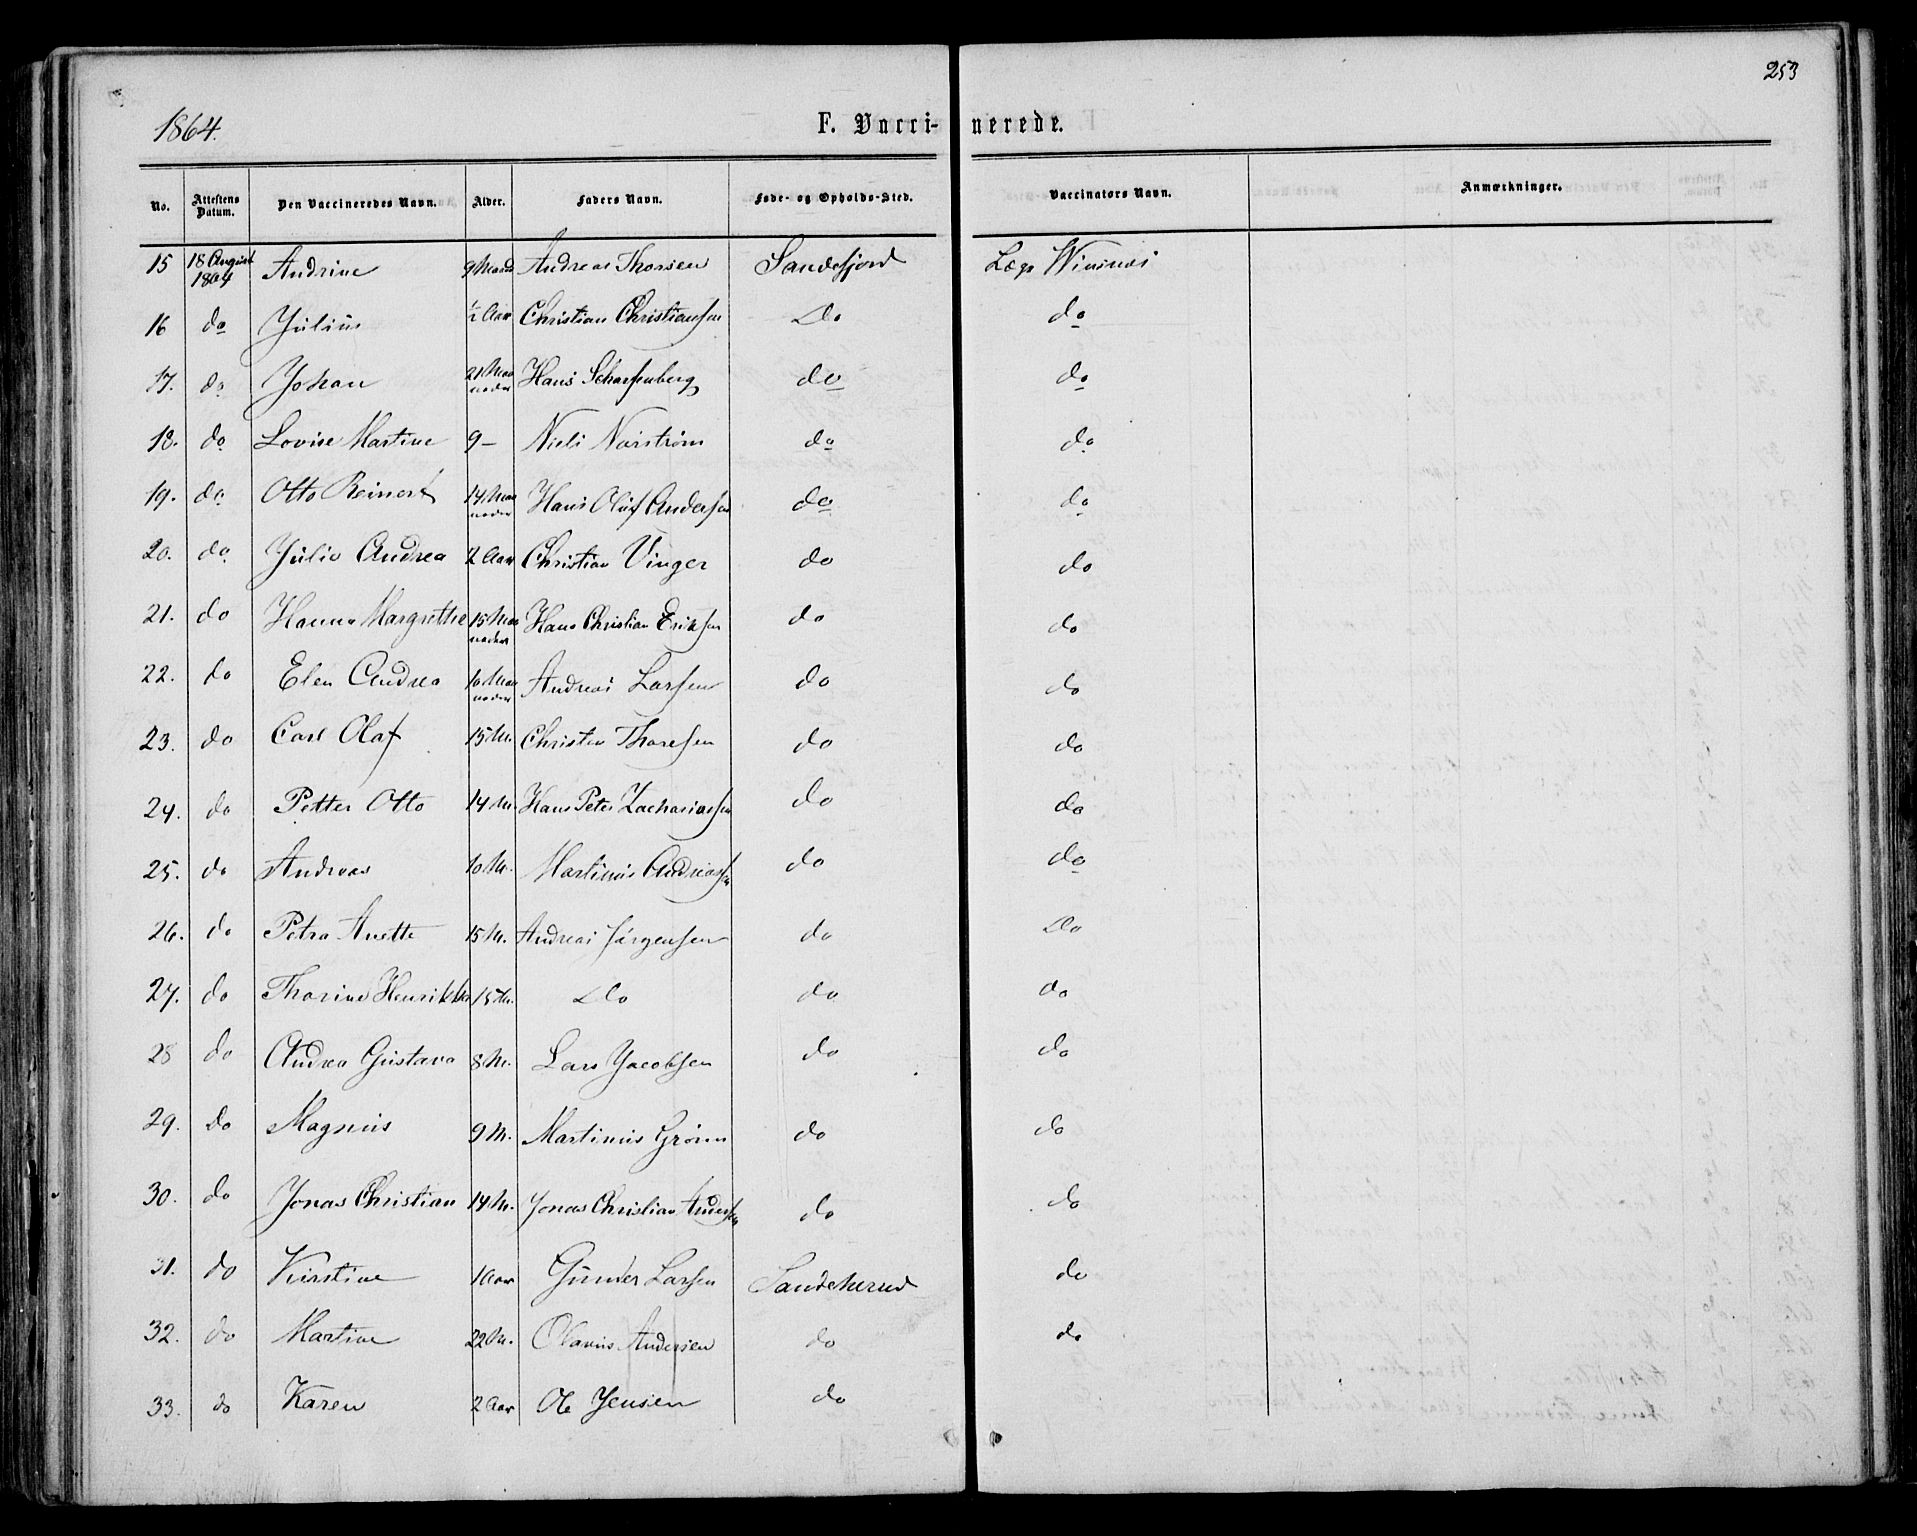 253
1864.
F. Vaccinerede.
No. Attestens Datum. Den Vaccineredes Navn. Alder. Faders Navn. Føde- og Opholds-Sted. Vaccinators Navn. Anmærkninger.
15 18 August 1864 Andrine 9 Maand Andreas Thorsen Sandefjord Læge
16 do Julius ½ Aar Christian Christiansen Do do
17. do Johan 21 Maaneder Hans Scharfenberg do do
18. do Lovise Martine 9 – Niels Norstrøm do do
19. do Otto Reinert 14 Maaneder Hans Oluf Andersen do do
20. do Julie Andrea 2 Aar Christian Vinger do do
21. do Hanna Margrethe 15 Maaneder Hans Christian Eriksen do do
22. do Elen Andrea 10 Maaneder Andreas Larsen do do
23. do Carl Olaf 15 M. Christen Thoresen do do
24. do Petter Otto 14 M. Hans Peter Zachariassen do do
25. do Andreas 10 M. Martinus Andreassen do do
26. do Petra Anette 15 M. Andreas Jørgensen do Do
27. do Thorine Henrikke 15 M. Do do do
28 do Andrea Gustava 8 M. Lars Jacobsen do do
29. do Magnus 9 M. Martinus Grønn do do
30. do Jonas Christian 14 M. Jonas Christian Andersen do do
31. do Kirstine 1 Aar Gunder Larsen Sandeherred do
32. do Martine 22 M. Olavus Andersen do do
33. do Karen 2 Aar Ole Jensen do